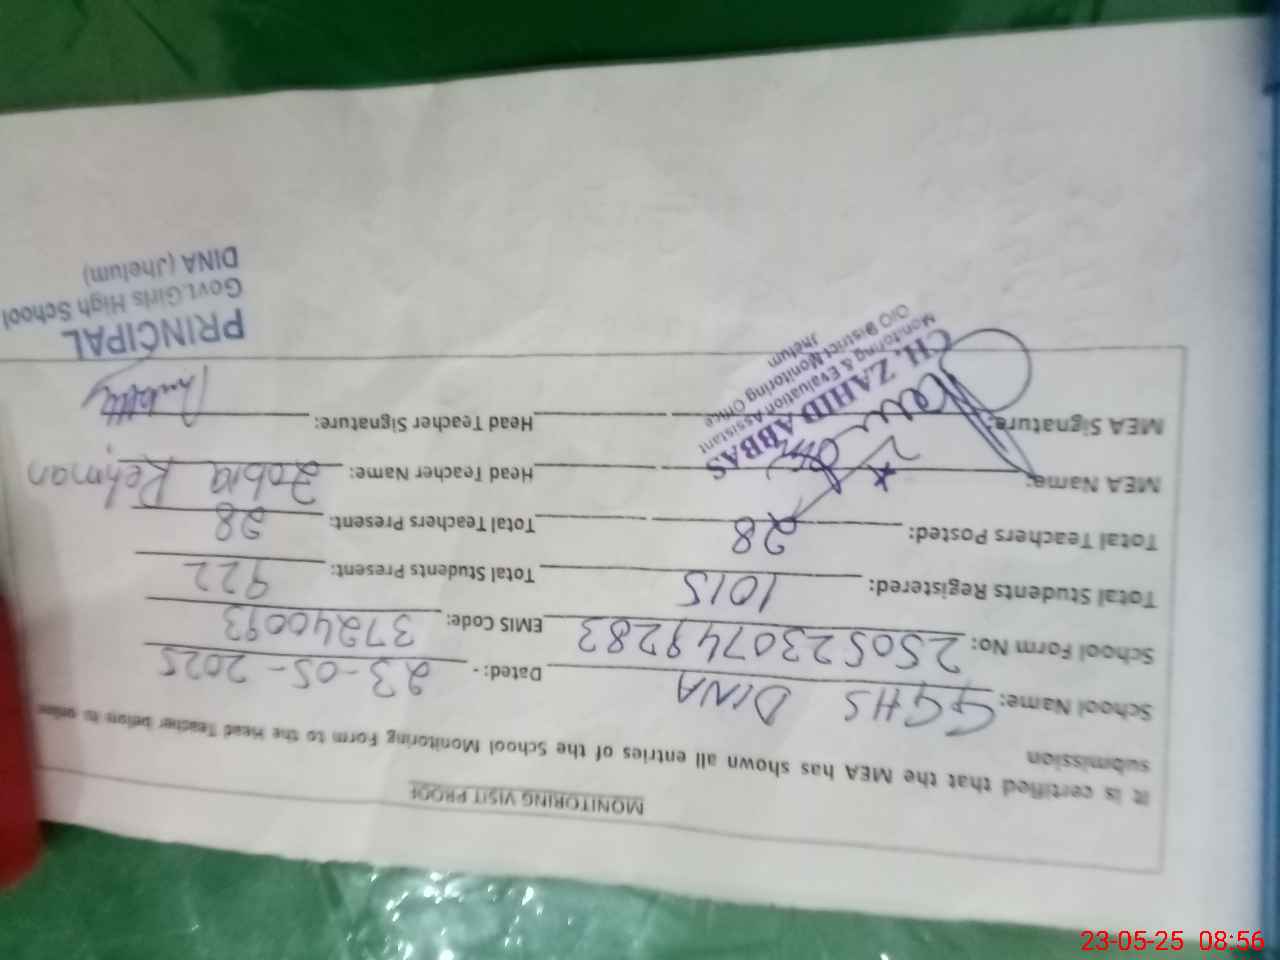 MONITORING VISIT PROOF
It is certified that the MEA has shown all entries of the School Monitoring Form to the Head Teacher before its online
submission
School Name: GGHS DINA Dated: - 23-05-2025
School Form No: 2505230749283 EMIS Code: 37240093
Total Students Registered: 1015 Total Students Present: 922
Total Teachers Posted: 28 Total Teachers Present: 28
MEA Name: Head Teacher Name: Zobia Rehman
MEA Signature: Head Teacher Signature:
CH. ZAHID ABBAS
Monitoring & Evaluation Assistant
O/O District Monitoring Office
Jhelum
PRINCIPAL
Govt.Girls High School
DINA (Jhelum)
23-05-25 08:56